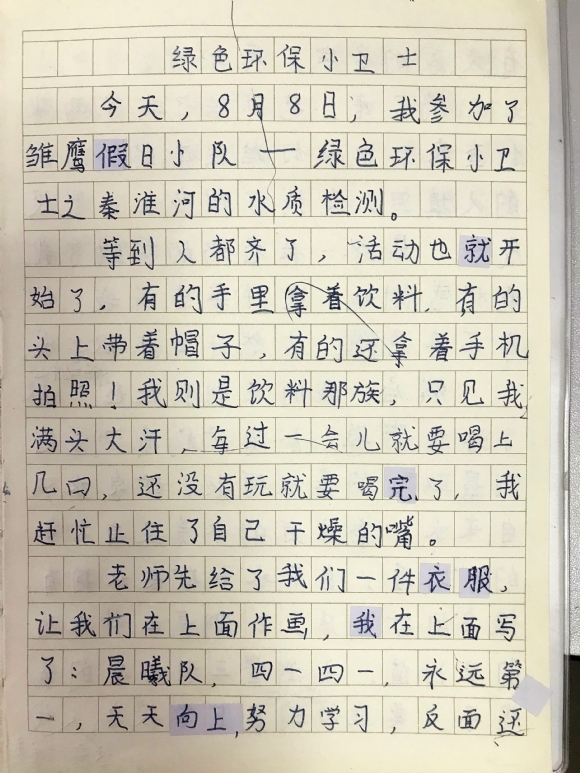 绿色环保小卫士
今天，8月8日，我参加了
雏鹰假日小队一绿色环保小卫
士之秦淮河的水质检测。
等到人都齐了，活动也就开
始了，有的手里拿着饮料，有的
头上带着帽子，有的还拿着手机
拍照！我则是饮料那族，只见我
满头大汗，每过一会儿就要喝上
几口，还没有玩就要喝完了，我
赶忙止住了自己干燥的嘴。
老师先给了我们一件衣服，
让我们在上面作画，我在上面写
了：晨曦队，四一四一，永远第
一，天天向上，努力学习，反面还